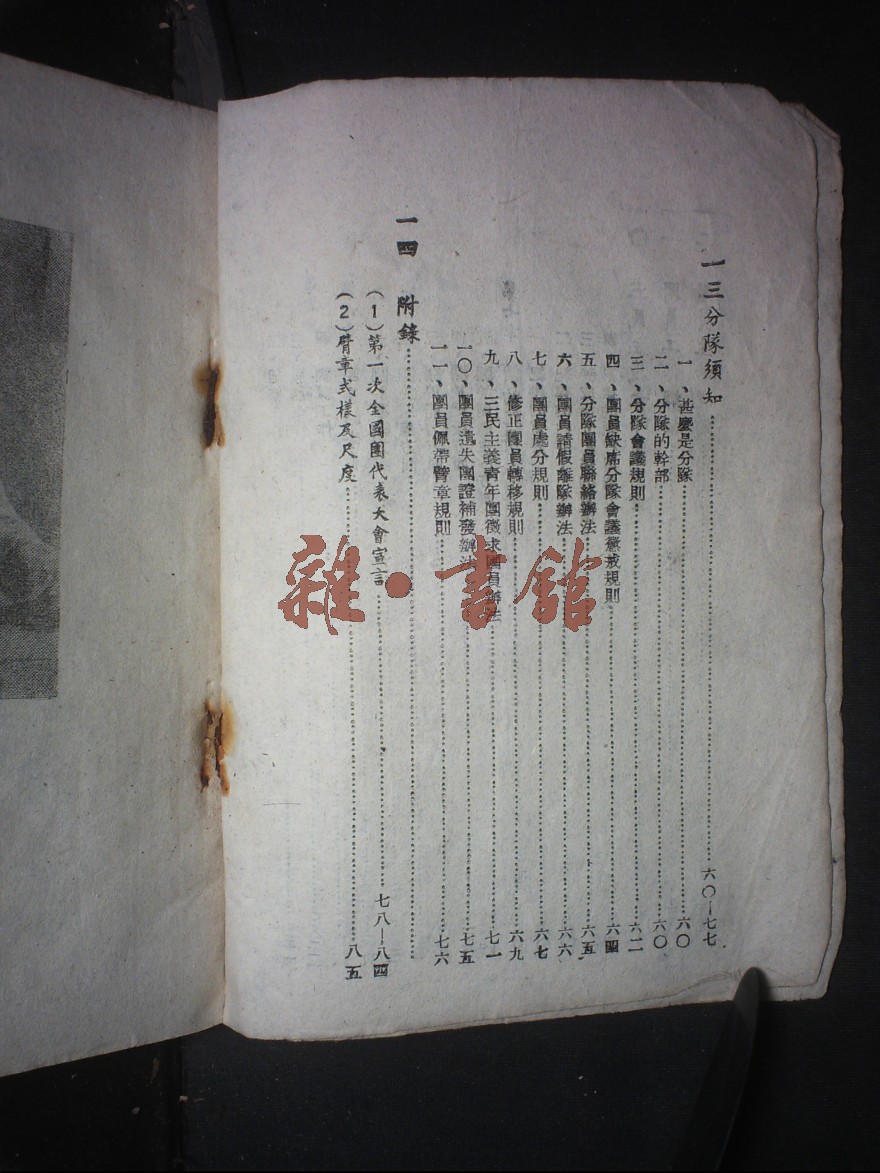 一三分隊須知……六〇—七七
一、甚麼是分隊……六〇
二、分隊的幹部……六〇
三、分隊會議規則……六二
四、團員缺席分隊會議懲戒規則……六四
五、分隊團員聯絡辦法……六五
六、團員請假離隊辦法……六六
七、團員處分規則……六七
八、修正團員轉移規則……六九
九、三民主義青年團徵求團員辦法……七一
一〇、團員遺失團證補發辦法……七五
一一、團員佩帶臂章規則……七六
一四 附錄……
(1)第一次全國團代表大會宣言……七八—八四
(2)臂章式樣及尺度……八五
雜·書館